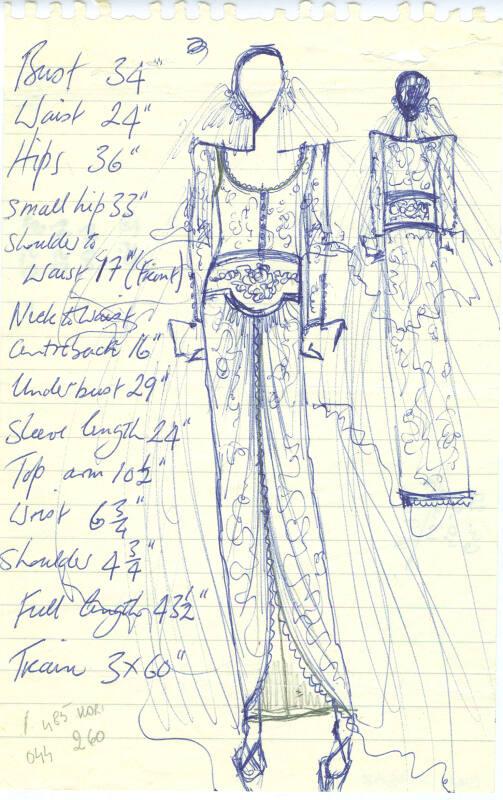 Bust 34"
Waist 24"
Hips 36"
small hip 33"
Shoulder to
Waist 17" (Front)
Neck to Waist
Centre back 16"
Underbust 29"
Sleeve length 24"
Top arm 10½"
Wrist 6¾"
Shoulder 4¾"
Full length 43½"
Train 3x60"
044 260